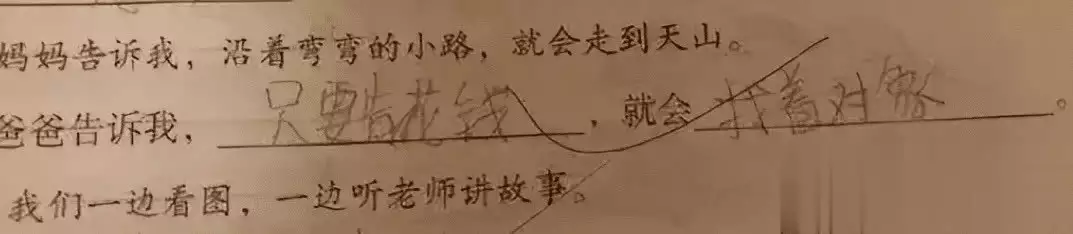 妈妈告诉我，沿着弯弯的小路，就会走到天山。
爸爸告诉我，只要肯花钱，就会找着对象。
我们一边看图，一边听老师讲故事。